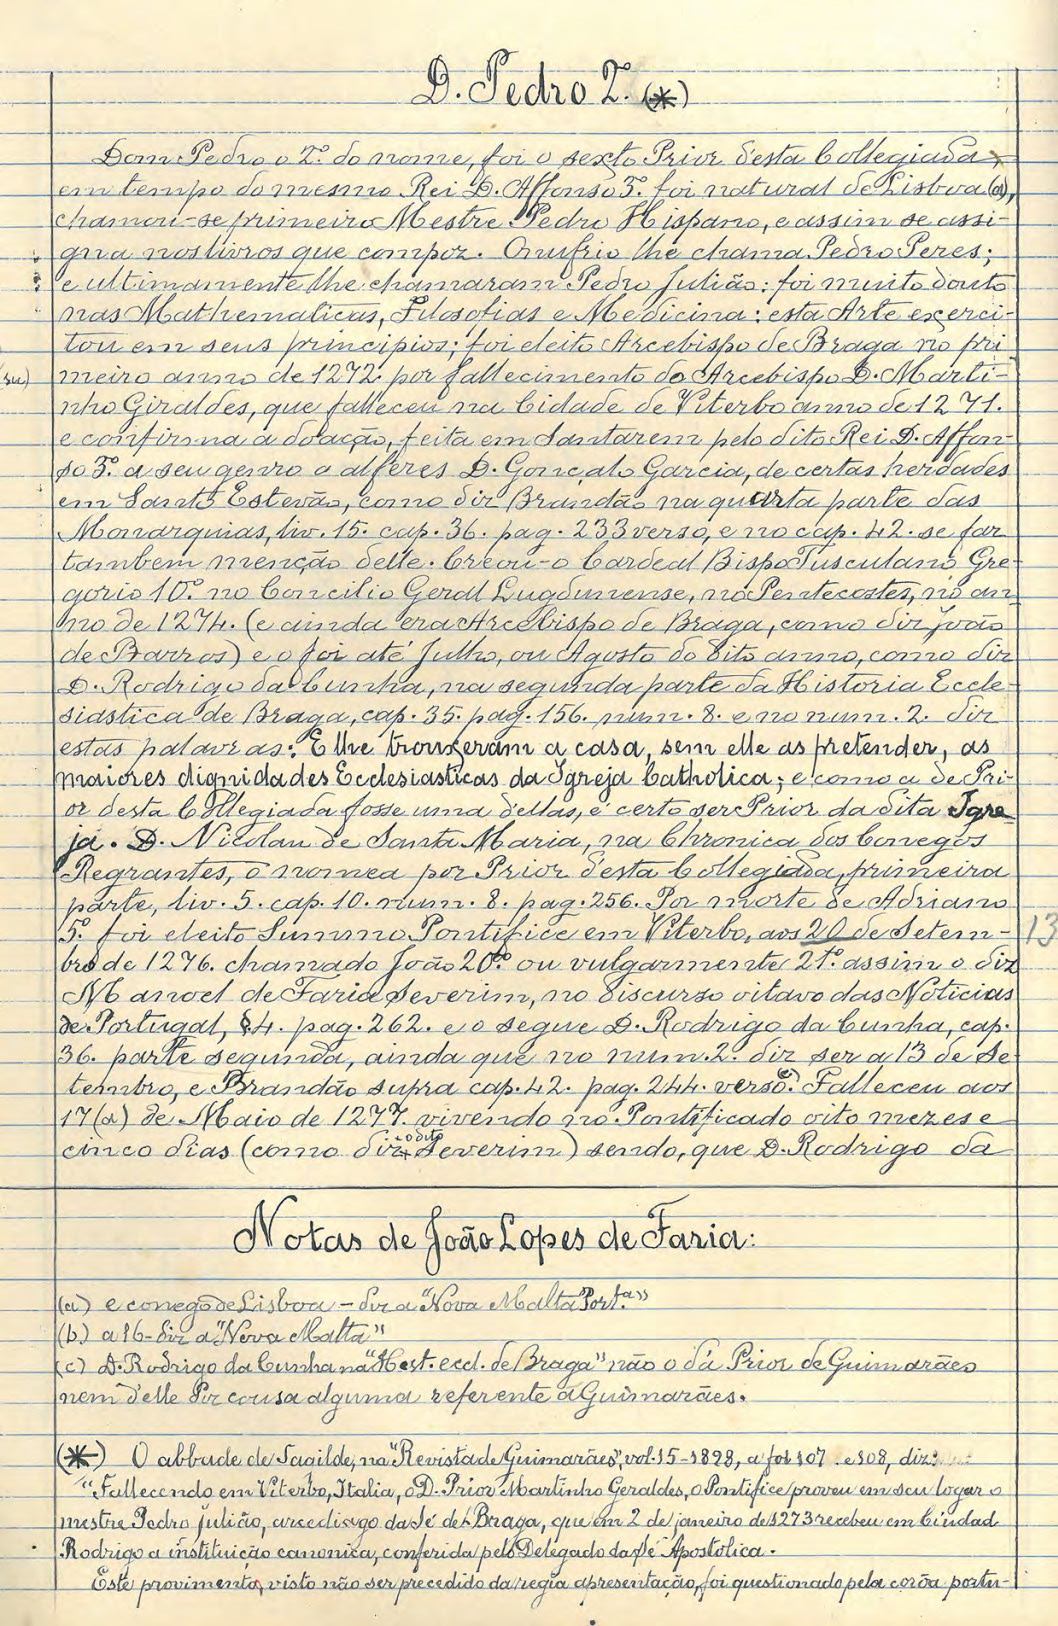 D. Pedro 2.º (*)
Dom Pedro o 2.º do nome, foi o sexto Prior d'esta Collegiada,
em tempo do mesmo Rei D. Affonso 3.º foi natural de Lisboa (a),
chamou-se primeiro Mestre Pedro Hispano, e assim se assi-
gna nos livros que compoz. Onufrio lhe chama Pedro Peres;
e ultimamente lhe chamaram Pedro Julião: foi muito douto
nas Mathematicas, Filosofias e Medicina: esta Arte exerci-
tou em seus principios; foi eleito Arcebispo de Braga no pri
meiro anno de 1272. por fallecimento do Arcebispo D. Marti-
nho Giraldes, que falleceu na Cidade de Viterbo anno de 1271.
e confirma a doação, feita em Santarem pelo dito Rei D. Affon-
so 3.º a seu genro o alferes D. Gonçalo Garcia, de certas herdades
em Santo Estevão, como diz Brandão na quarta parte das
Monarquias, liv. 15. cap. 36. pag. 233 verso, e no cap. 42. se faz
tambem menção delle. Creou-o Cardeal Bispo Tusculano Gre-
gorio 10.º no Concilio Geral Lugdunense, no Pentecostes, no an
no de 1274. (e ainda era Arcebispo de Braga, como diz João
de Barros) e o foi até Julho, ou Agosto do dito anno, como diz
D. Rodrigo da Cunha, na segunda parte da Historia Eccle-
siastica de Braga, cap. 35. pag. 156. num. 8. e no num. 2. diz
estas palavras: E lhe trouxeram a casa, sem elle as pretender, as
maiores dignidades Ecclesiasticas da Igreja Catholica; e como a de Pri-
or desta Collegiada fosse uma d'ellas, é certo ser Prior da dita Igre
ja. D. Nicolau de Santa Maria, na Chronica dos Conegos
Regrantes, o nomea por Prior d'esta Collegiada, primeira
parte, liv. 5. cap. 10. num. 8. pag. 256. Por morte de Adriano
5.º foi eleito Summo Pontifice em Viterbo, aos 20 de Setem- 13
bro de 1276. chamado João 20.º ou vulgarmente 21.º assim o diz
Manoel de Faria Severim, no discurso oitavo das Noticias
de Portugal, §4. pag. 262. e o segue D. Rodrigo da Cunha, cap.
36. parte segunda, ainda que no num. 2. diz ser a 13 de Se
tembro, e Brandão supra cap. 42. pag. 244. verso. (c) Falleceu aos
17 (a) de Maio de 1277. vivendo no Pontificado oito mezes e
cinco dias (como diz + o dito Severim) sendo, que D. Rodrigo da
Notas de João Lopes de Faria:
(a) e conego de Lisboa - diz a "Nova Malta Port.ª"
(b) a 16 - diz a "Nova Malta"
(c) D. Rodrigo da Cunha na "Hist. eccl. de Braga" não o dá Prior de Guimarães
nem d'elle diz cousa alguma referente a Guimarães.
(*) O abbade de Tagilde, na "Revista de Guimarães", vol. 15 - 1898, a fol 107 e 108, diz:
"Fallecendo em Viterbo, Italia, o D. Prior Martinho Geraldes, o Pontifice proveu em seu logar o
mestre Pedro Julião, arcediago da Sé de Braga, que em 2 de janeiro de 1273 recebeu em Ciudad
Rodrigo a instituição canonica, conferida pelo Delegado da Sé Apostolica.
Este provimento, visto não ser precedido da regia apresentação, foi questionado pela corôa portu-